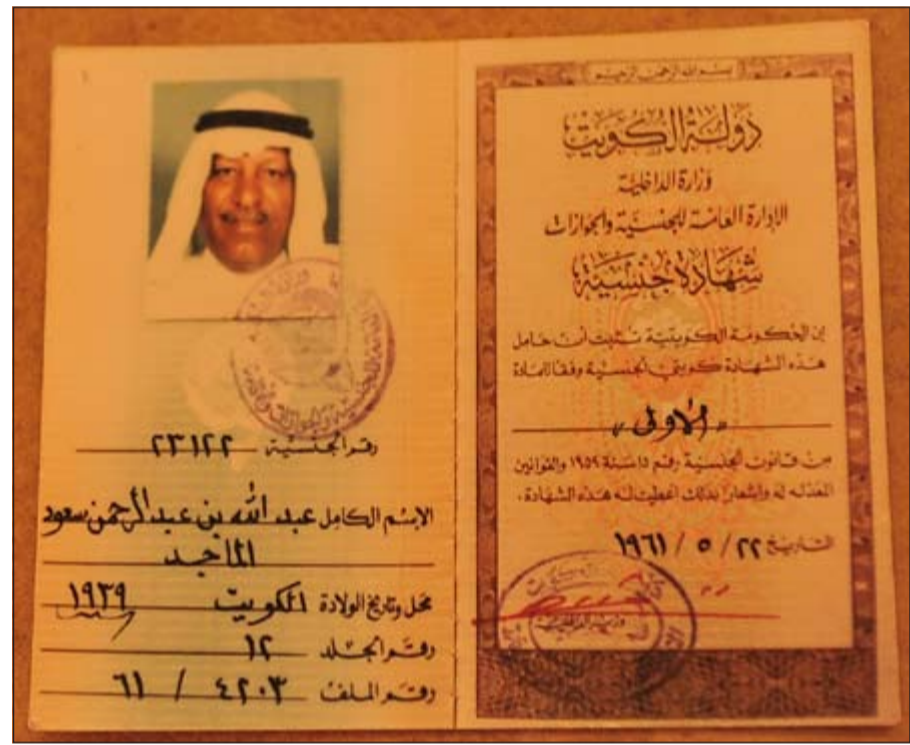 بسم الله الرحمن الرحيم
دولة الكويت
وزارة الداخلية
الإدارة العامة للجنسية والجوازات
شهادة جنسية
إن الحكومة الكويتية تثبت أن حامل
هذه الشهادة كويتي الجنسية وفقا للمادة
« الأولى »
من قانون الجنسية رقم ١٥ لسنة ١٩٥٩ والقوانين
المعدلة له وإشعارا بذلك أعطيت له هذه الشهادة .
التاريخ ٢٢ / ٥ / ١٩٦١
رقم الجنسية ٢٣١٢٢
الاسم الكامل عبد الله بن عبد الرحمن سعود
الماجد
محل وتاريخ الولادة الكويت ١٩٣٩
رقم الجلد ١٢
رقم الملف ٤٢٠٣ / ٦١